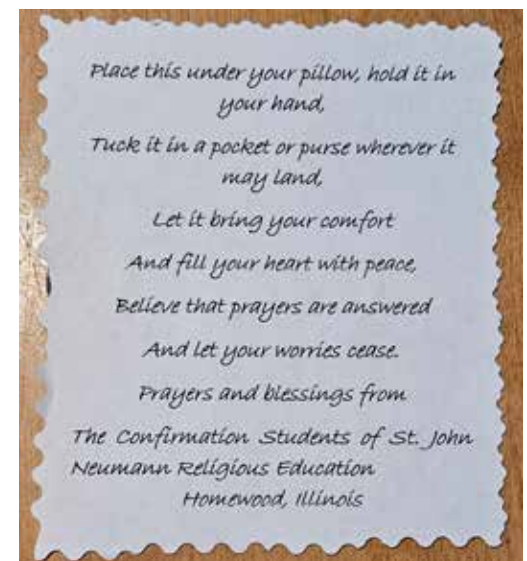 Place this under your pillow, hold it in
your hand,
Tuck it in a pocket or purse wherever it
may land,
Let it bring your comfort
And fill your heart with peace,
Believe that prayers are answered
And let your worries cease.
Prayers and blessings from
The Confirmation Students of St. John
Neumann Religious Education
Homewood, Illinois